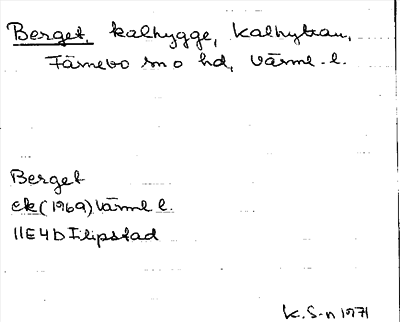 Berget, kalhygge, Kalhyttan,
Färnebo sn o hd, Värml. l.
Berget
ek (1969) Värml l.
11E4b Filipstad
K. S-n 1971